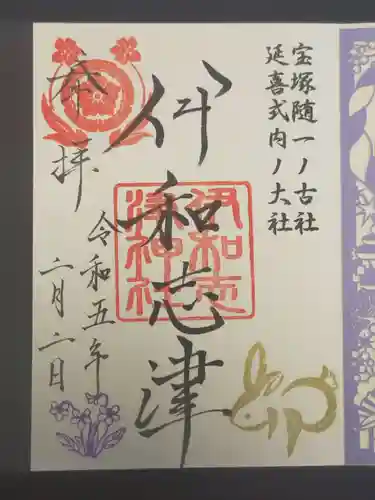 宝塚随一ノ古社
延喜式内ノ大社
伊和志津
伊和志津神社
奉拝
令和五年
二月二日
卯